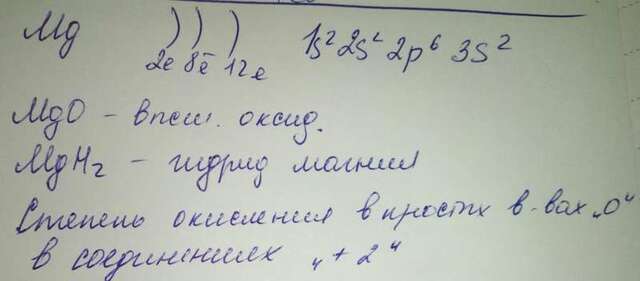 Mg ) ) ) 1s² 2s² 2p⁶ 3s²
2е 8ē 12е
MgO – высш. оксид.
MgH₂ – гидрид магния
Степень окисления в простых в-вах „0“
в соединениях „+2“